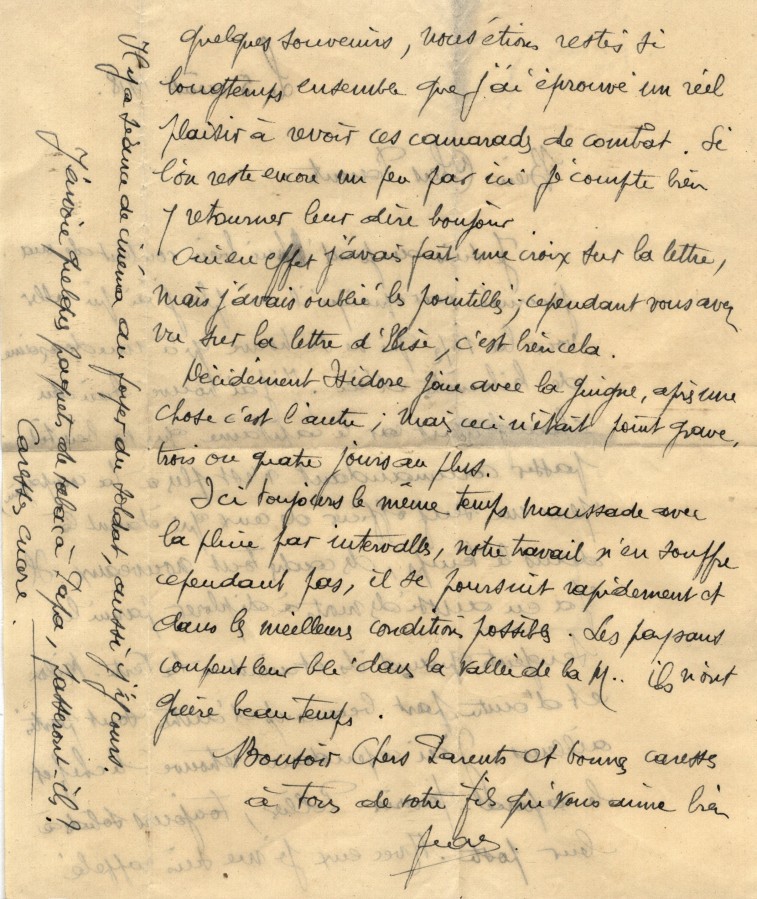 quelques souvenirs, nous étions restés si
longtemps ensemble que j'ai éprouvé un réel
plaisir à revoir ces camarads de combat. Si
l'on reste encore un peu par ici je compte bien
y retourner leur dire bonjour.
Oui en effet j'avais fait une croix sur la lettre,
mais j'avais oublié les pointillés; cependant vous avez
vu sur la lettre d'Elise, c'est bien cela.
Décidément Isidore joue avec la guigne, après une
chose c'est l'autre; mais ceci n'était point grave,
trois ou quatre jours au plus.
Ici toujours le même temps maussade avec
la pluie par intervalles, notre travail n'en souffre
cependant pas, il se poursuit rapidement et
dans les meilleures conditions possibles. Les paysans
coupent leur blé dans la vallée de la M.. ils n'ont
guère beau temps.
Bonsoir Chers Parents et bonnes caresses
à tous de votre fils qui vous aime bien
Il y a séance de cinéma au foyer du soldat, aussi j'y cours.
J'envoie quelques paquets de tabac à Papa, passeront-ils?
Caresses encore.